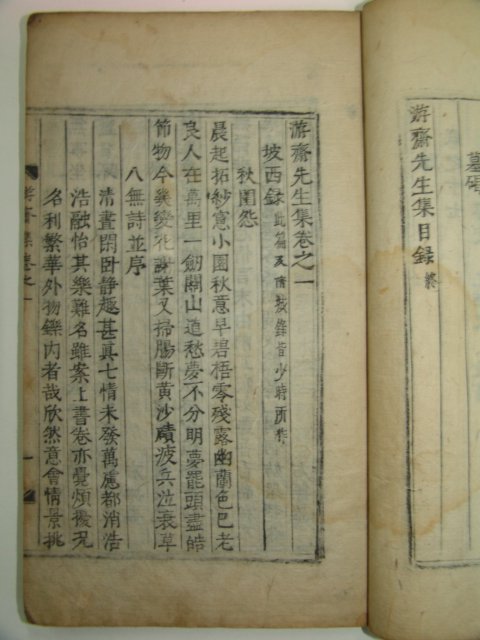 墓碣
游齋先生集目録 終
游齋先生集卷之一
坡西録 此篇及南坡録皆少時所作
秋閨怨
晨起拓紗窓小園秋意早碧梧零殘露幽蘭色已老
良人在萬里一劒關山道愁夢不分明夢罷頭盡皓
節物今幾變花謝葉又掃腸斷黄沙磧疲兵泣衰草
八無詩並序
清晝閑卧静趣甚真七情未發萬慮都消浩
浩融怡其樂難名雖案上書卷亦覺煩擾况
名利繁華外物鑠内者哉欣然意會情景挑
游齋集卷之一